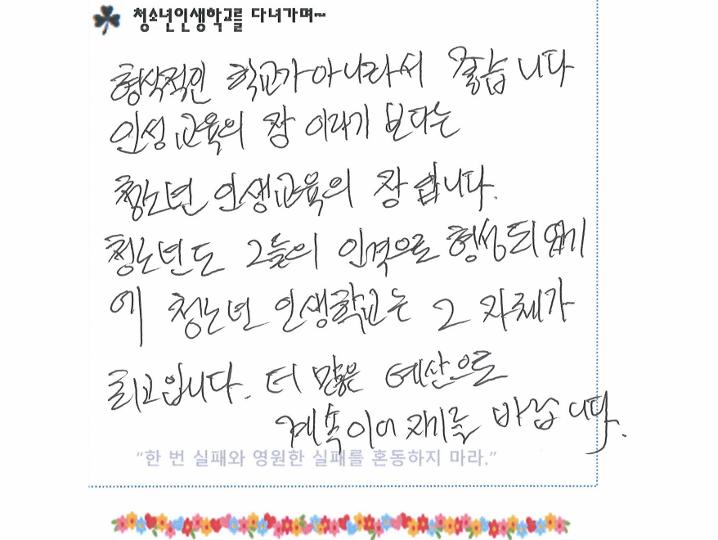 청소년인생학교를 다녀가며...
형식적인 학교가아니라서 좋습니다
인성교육의 장 이라기 보다는
청소년 인생교육의 장 입니다.
청소년도 그들의 인격으로 형성되었기
에 청소년 인생학교는 그 자체가
최고입니다. 더 많은 예산으로
계속이어지기를 바랍니다.
“한 번 실패와 영원한 실패를 혼동하지 마라.”